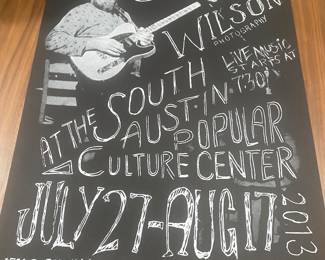 WILSON
PHOTOGRAPHY
LIVE MUSIC
STARTS AT
7:30
AT THE SOUTH
AUSTIN
POPULAR
CULTURE CENTER
JULY 27-AUG 17
2013